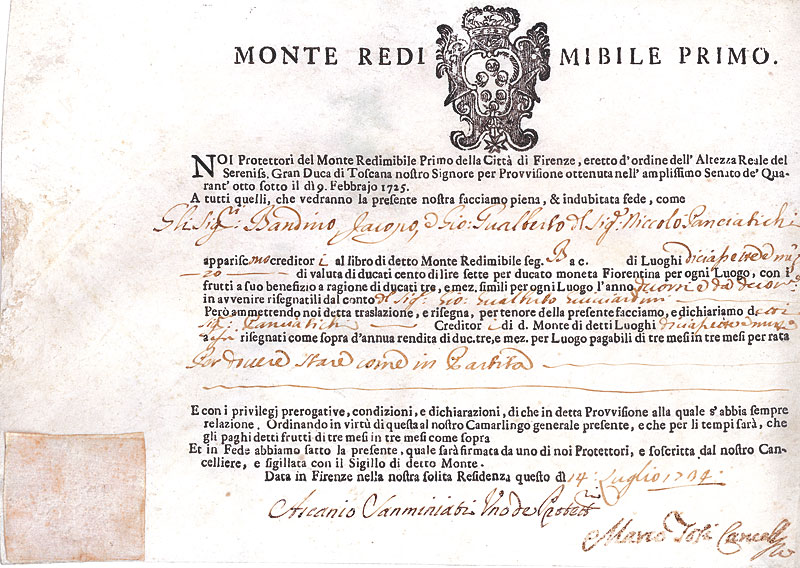 MONTE REDI MIBILE PRIMO.
NOI Protettori del Monte Redimibile Primo della Città di Firenze, eretto d'ordine dell'Altezza Reale del
Sereniss. Gran Duca di Toscana nostro Signore per Provvisione ottenuta nell'amplissimo Senato de' Qua-
rant' otto sotto il dì 9. Febbrajo 1725.
A tutti quelli, che vedranno la presente nostra facciamo piena, & indubitata fede, come
Gli Sig.ri Bandino, Jacopo, e Gio: Gualberto del Sig.r Niccolò Panciatichi
apparisc mo creditor i al libro di detto Monte Redimibile seg. B a c. di Luoghi diciasette e mez
zo di valuta di ducati cento di lire sette per ducato moneta Fiorentina per ogni Luogo, con i
frutti a suo benefizio a ragione di ducati tre, e mez. simili per ogni Luogo l'anno decorsi e da decor
in avvenire risegnatili dal conto del Sig.r Gio: Gualberto
Però ammettendo noi detta traslazione, e risegna, per tenore della presente facciamo, e dichiariamo d etti
Sig.ri Panciatichi Creditor i di d. Monte di detti Luoghi diciasette e mezzo
risegnati come sopra d'annua rendita di duc. tre, e mez. per Luogo pagabili di tre mesi in tre mesi per rata
Per dovere stare come in Partita
E con i privilegj prerogative, condizioni, e dichiarazioni, di che in detta Provvisione alla quale s'abbia sempre
relazione. Ordinando in virtù di questa al nostro Camarlingo generale presente, e che per li tempi sarà, che
gli paghi detti frutti di tre mesi in tre mesi come sopra
Et in Fede abbiamo fatto la presente, quale sarà firmata da uno di noi Protettori, e soscritta dal nostro Can-
celliere, e sigillata con il Sigillo di detto Monte.
Data in Firenze nella nostra solita Residenza questo dì 14. Luglio 1734.
Ascanio Sanminiati Uno de Protett.ri
Mario Tosi Cancell.re